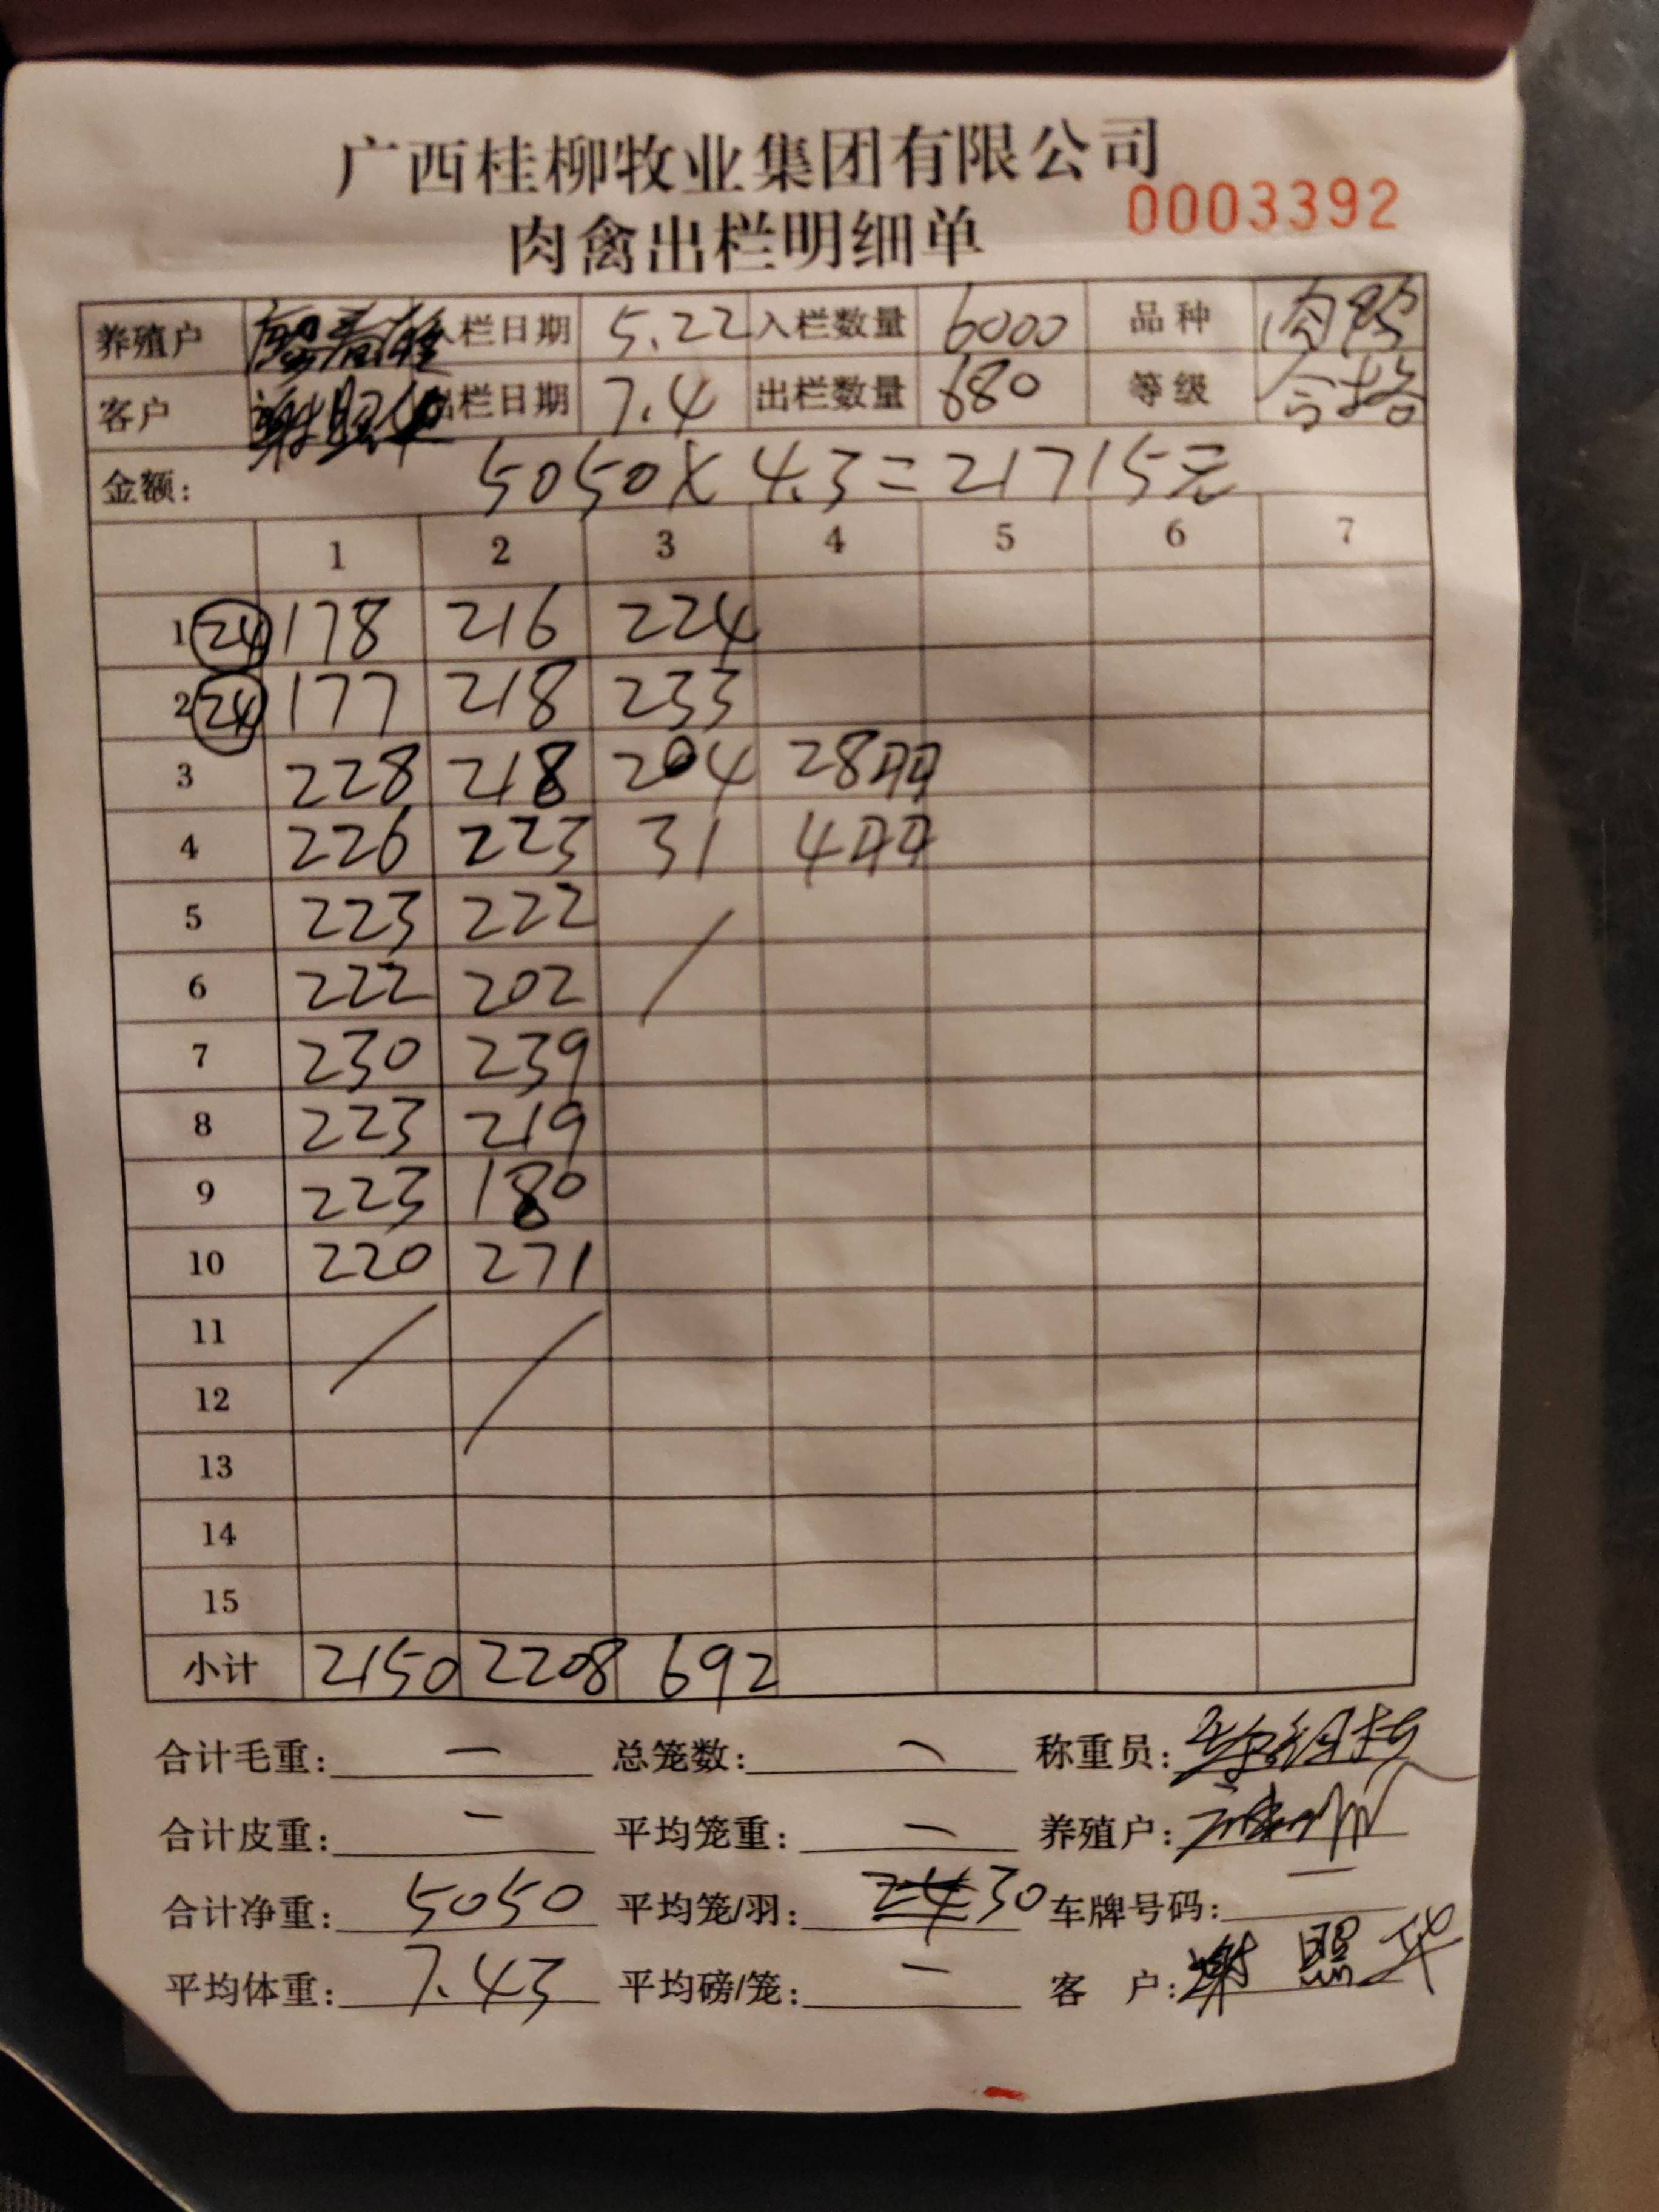 广西桂柳牧业集团有限公司
肉禽出栏明细单 0003392
养殖户 入栏日期 5.22 入栏数量 6000 品种 肉鸭
客户 出栏日期 7.4 出栏数量 680 等级 合格
金额: 5050X4.3=21715元
1 2 3 4 5 6 7
1 24 178 216 224
2 24 177 218 233
3 228 218 204 28
4 226 223 31 4
5 223 222
6 222 202
7 230 239
8 223 219
9 223 180
10 220 271
11
12
13
14
15
小计 2150 2208 692
合计毛重: 一 总笼数: 一 称重员:
合计皮重: 一 平均笼重: 一 养殖户:
合计净重: 5050 平均笼/羽: 24 30 车牌号码: 一
平均体重: 7.43 平均磅/笼: 一 客户: 谢照华